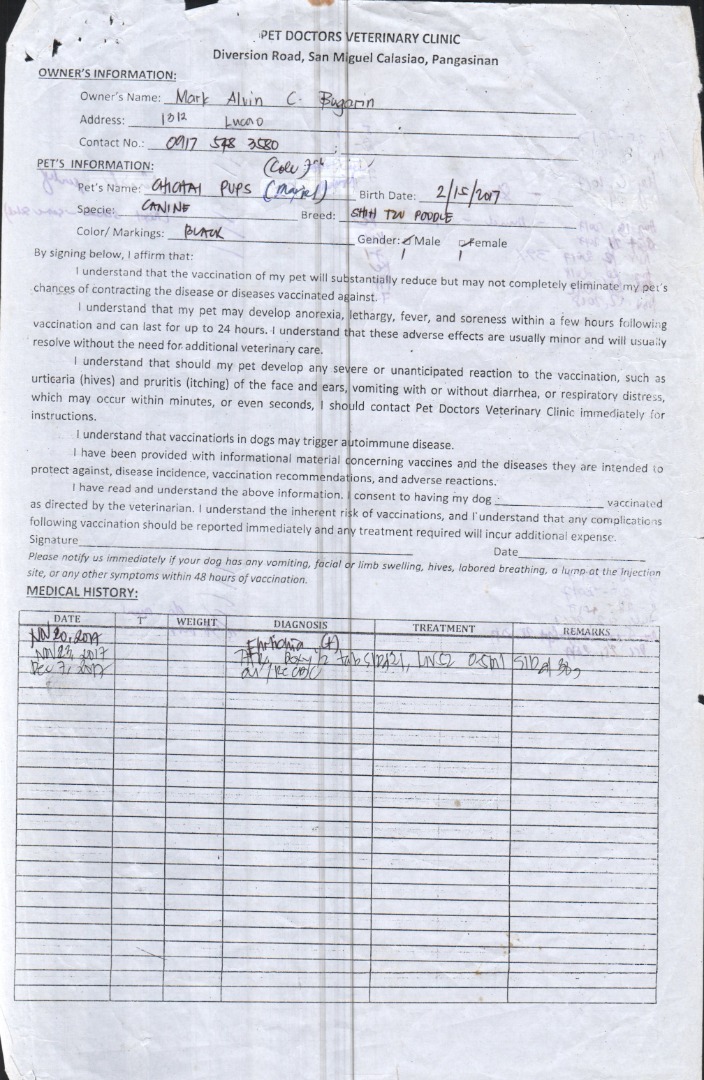 PET DOCTORS VETERINARY CLINIC
Diversion Road, San Miguel Calasiao, Pangasinan
OWNER'S INFORMATION:
Owner's Name: Mark Alvin C. Bugarin
Address: Lucao
Contact No.: 0917 578 3580
PET'S INFORMATION:
Pet's Name: CHICHAI PUPS Birth Date: 2/15/2017
Specie: CANINE Breed: SHIH TZU POODLE
Color/ Markings: BLACK Gender: Male Female
By signing below, I affirm that:
I understand that the vaccination of my pet will substantially reduce but may not completely eliminate my pet's
chances of contracting the disease or diseases vaccinated against.
I understand that my pet may develop anorexia, lethargy, fever, and soreness within a few hours following
vaccination and can last for up to 24 hours. I understand that these adverse effects are usually minor and will usually
resolve without the need for additional veterinary care.
I understand that should my pet develop any severe or unanticipated reaction to the vaccination, such as
urticaria (hives) and pruritis (itching) of the face and ears, vomiting with or without diarrhea, or respiratory distress,
which may occur within minutes, or even seconds, I should contact Pet Doctors Veterinary Clinic immediately for
instructions.
I understand that vaccinations in dogs may trigger autoimmune disease.
I have been provided with informational material concerning vaccines and the diseases they are intended to
protect against, disease incidence, vaccination recommendations, and adverse reactions.
I have read and understand the above information. I consent to having my dog vaccinated
as directed by the veterinarian. I understand the inherent risk of vaccinations, and I understand that any complications
following vaccination should be reported immediately and any treatment required will incur additional expense.
Signature Date
Please notify us immediately if your dog has any vomiting, facial or limb swelling, hives, labored breathing, a lump at the injection
site, or any other symptoms within 48 hours of vaccination.
MEDICAL HISTORY:
DATE T° WEIGHT DIAGNOSIS TREATMENT REMARKS
Nov 20, 2017 Ehrlichia (+)
Nov 23, 2017
Dec 7, 2017